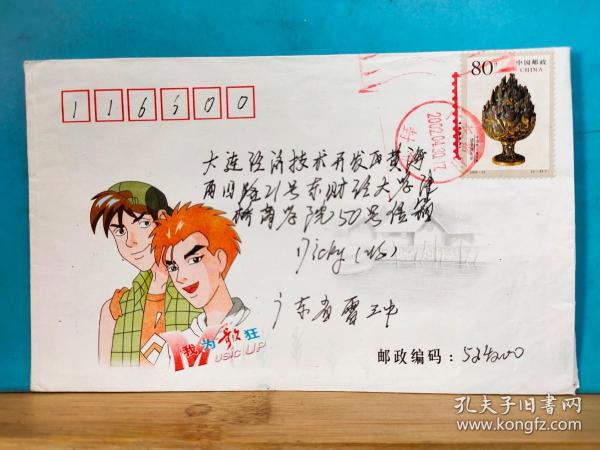 80分
中国邮政
CHINA
2002.04.30.17
116600
大连经济技术开发区黄海
西路21号东财经大学津
桥商学院50号信箱
Vicky (收)
广东省雷王中
我为歌狂
MUSIC UP
邮政编码：524200
孔夫子旧书网
www.kongfz.com